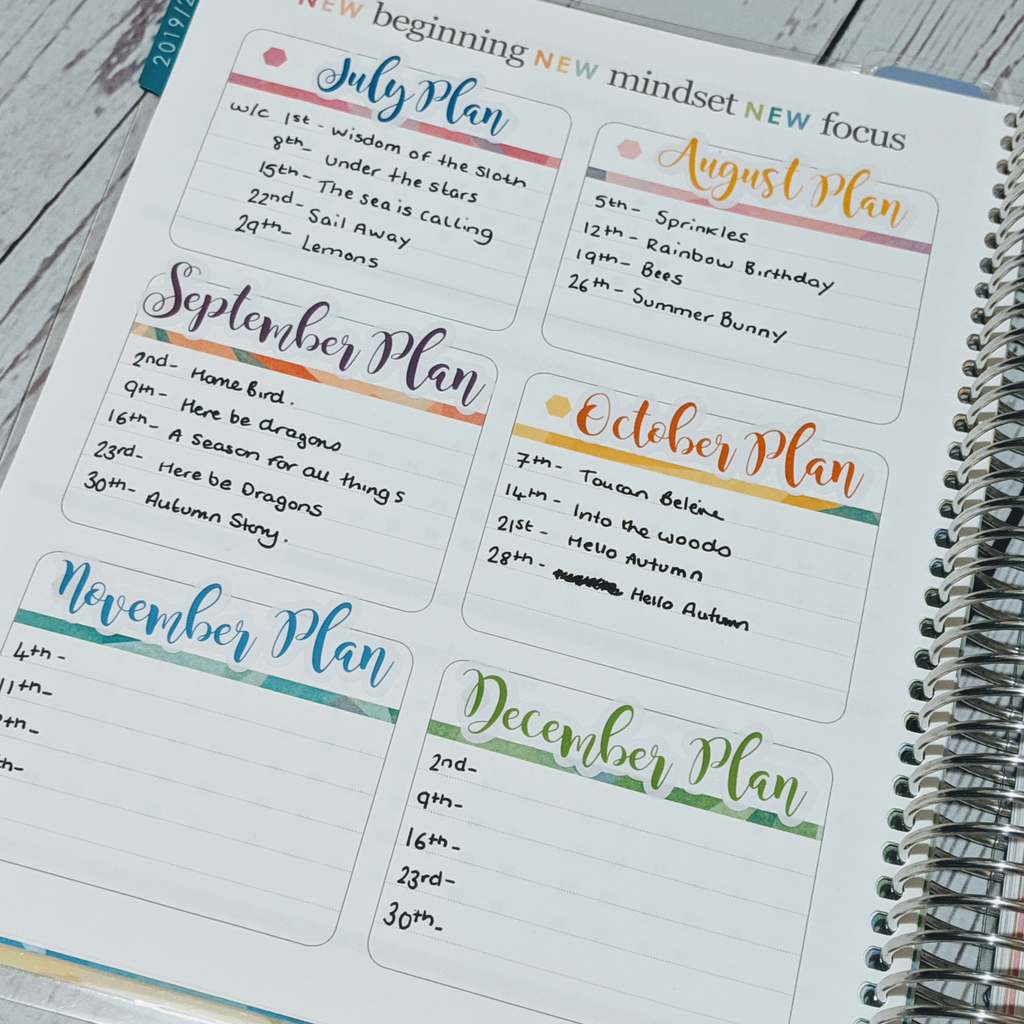 2019/2
NEW beginning NEW mindset NEW focus
July Plan
w/c 1st - Wisdom of the Sloth
8th - under the stars
15th - The sea is calling
22nd - Sail Away
29th - Lemons
August Plan
5th - Sprinkles
12th - Rainbow Birthday
19th - Bees
26th - Summer Bunny
September Plan
2nd - Home Bird.
9th - Here be dragons
16th - A season for all things
23rd - Here be Dragons
30th - Autumn Story.
October Plan
7th - Toucan
14th - Into the woods
21st - Hello Autumn
28th - Hello Autumn
November Plan
4th -
11th -
th -
th -
December Plan
2nd -
9th -
16th -
23rd -
30th -